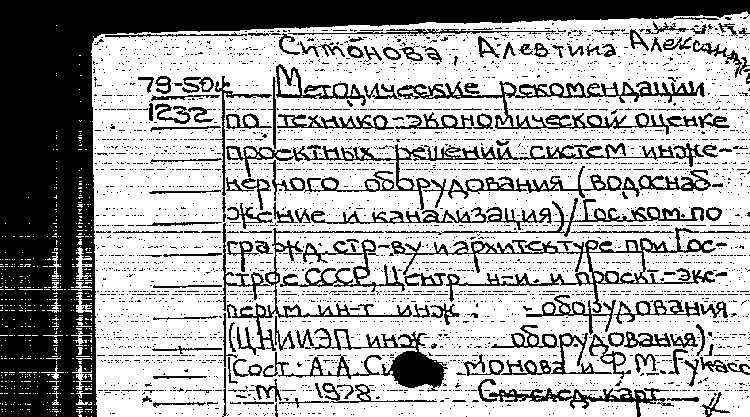 Симонова, Алевтина Александр
79-50ч Методические рекомендации
1232 по технико-экономической оценке
проектных решений систем инже-
нерного оборудования (водоснаб-
жение и канализация)/Гос. ком. по
гражд. стр-ву и архитектуре при Гос-
строе СССР, Центр. н-и. и проект.-экс-
перим. ин-т инж. оборудования
(ЦНИИЭП инж. оборудования);
[Сост.: А.А. Симонова и Р.М. Гукасо
- М., 1978. См. след. карт.